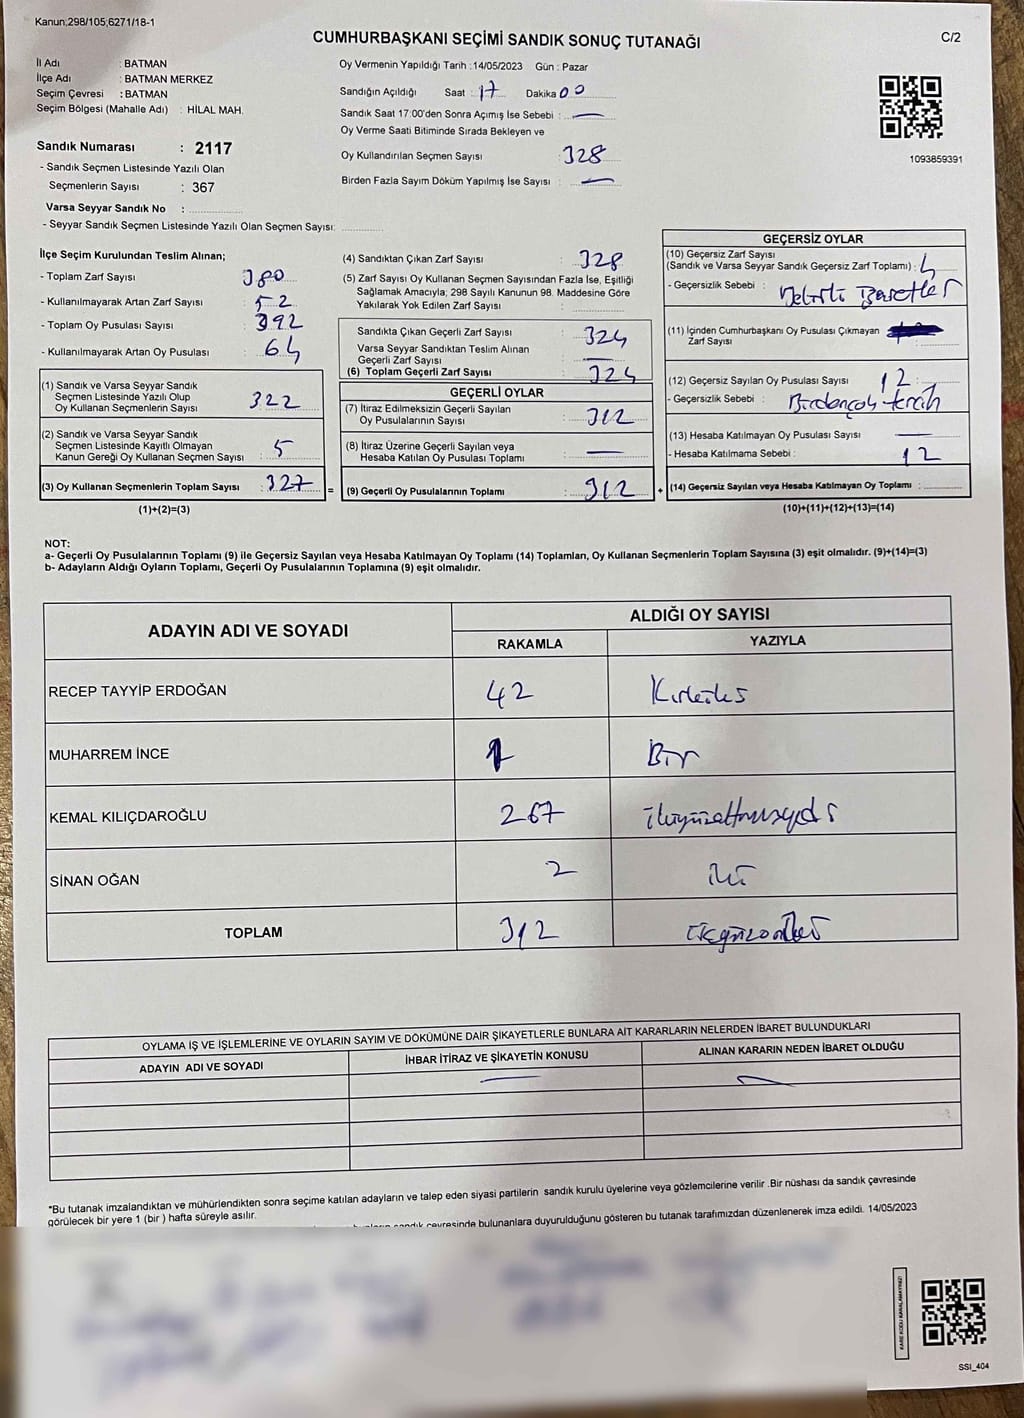 Kanun,298/105,6271/18-1
CUMHURBAŞKANI SEÇİMİ SANDIK SONUÇ TUTANAĞI
C/2
İl Adı : BATMAN
İlçe Adı : BATMAN MERKEZ
Seçim Çevresi : BATMAN
Seçim Bölgesi (Mahalle Adı) : HİLAL MAH.
Sandık Numarası : 2117
- Sandık Seçmen Listesinde Yazılı Olan
Seçmenlerin Sayısı : 367
Varsa Seyyar Sandık No :
- Seyyar Sandık Seçmen Listesinde Yazılı Olan Seçmen Sayısı:
Oy Vermenin Yapıldığı Tarih :14/05/2023 Gün : Pazar
Sandığın Açıldığı Saat : 17 Dakika 00
Sandık Saat 17:00'den Sonra Açımış İse Sebebi : —
Oy Verme Saati Bitiminde Sırada Bekleyen ve
Oy Kullandırılan Seçmen Sayısı : 328
Birden Fazla Sayım Döküm Yapılmış İse Sayısı : —
1093859391
İlçe Seçim Kurulundan Teslim Alınan;
- Toplam Zarf Sayısı 380
- Kullanılmayarak Artan Zarf Sayısı : 52
- Toplam Oy Pusulası Sayısı : 392
- Kullanılmayarak Artan Oy Pusulası : 64
(1) Sandık ve Varsa Seyyar Sandık
Seçmen Listesinde Yazılı Olup
Oy Kullanan Seçmenlerin Sayısı : 322
(2) Sandık ve Varsa Seyyar Sandık
Seçmen Listesinde Kayıtlı Olmayan
Kanun Gereği Oy Kullanan Seçmen Sayısı : 5
(3) Oy Kullanan Seçmenlerin Toplam Sayısı : 327 =
(1)+(2)=(3)
(4) Sandıktan Çıkan Zarf Sayısı : 328
(5) Zarf Sayısı Oy Kullanan Seçmen Sayısından Fazla İse, Eşitliği
Sağlamak Amacıyla; 298 Sayılı Kanunun 98. Maddesine Göre
Yakılarak Yok Edilen Zarf Sayısı :
Sandıkta Çıkan Geçerli Zarf Sayısı : 324
Varsa Seyyar Sandıktan Teslim Alınan
Geçerli Zarf Sayısı : —
(6) Toplam Geçerli Zarf Sayısı : 324
GEÇERLİ OYLAR
(7) İtiraz Edilmeksizin Geçerli Sayılan
Oy Pusulalarının Sayısı : 312
(8) İtiraz Üzerine Geçerli Sayılan veya
Hesaba Katılan Oy Pusulası Toplamı : —
(9) Geçerli Oy Pusulalarının Toplamı : 312 +
GEÇERSİZ OYLAR
(10) Geçersiz Zarf Sayısı
(Sandık ve Varsa Seyyar Sandık Geçersiz Zarf Toplamı) : 4
- Geçersizlik Sebebi :
(11) İçinden Cumhurbaşkanı Oy Pusulası Çıkmayan
Zarf Sayısı :
(12) Geçersiz Sayılan Oy Pusulası Sayısı : 12
- Geçersizlik Sebebi : Birdençok tercih
(13) Hesaba Katılmayan Oy Pusulası Sayısı : —
- Hesaba Katılmama Sebebi : 12
(14) Geçersiz Sayılan veya Hesaba Katılmayan Oy Toplamı :
(10)+(11)+(12)+(13)=(14)
NOT:
a- Geçerli Oy Pusulalarının Toplamı (9) ile Geçersiz Sayılan veya Hesaba Katılmayan Oy Toplamı (14) Toplamları, Oy Kullanan Seçmenlerin Toplam Sayısına (3) eşit olmalıdır. (9)+(14)=(3)
b- Adayların Aldığı Oyların Toplamı, Geçerli Oy Pusulalarının Toplamına (9) eşit olmalıdır.
ADAYIN ADI VE SOYADI ALDIĞI OY SAYISI
RAKAMLA YAZIYLA
RECEP TAYYİP ERDOĞAN 42 Kırkiki
MUHARREM İNCE 1 Bir
KEMAL KILIÇDAROĞLU 267 ikiyüzaltmışyedi
SİNAN OĞAN 2 iki
TOPLAM 312 üçyüzoniki
OYLAMA İŞ VE İŞLEMLERİNE VE OYLARIN SAYIM VE DÖKÜMÜNE DAİR ŞİKAYETLERLE BUNLARA AİT KARARLARIN NELERDEN İBARET BULUNDUKLARI
ADAYIN ADI VE SOYADI İHBAR İTİRAZ VE ŞİKAYETİN KONUSU ALINAN KARARIN NEDEN İBARET OLDUĞU
— —
*Bu tutanak imzalandıktan ve mühürlendikten sonra seçime katılan adayların ve talep eden siyasi partilerin sandık kurulu üyelerine veya gözlemcilerine verilir .Bir nüshası da sandık çevresinde
görülecek bir yere 1 (bir ) hafta süreyle asılır.
sandık çevresinde bulunanlara duyurulduğunu gösteren bu tutanak tarafımızdan düzenlenerek imza edildi. 14/05/2023
KARE KODU KARALAMAYINIZ!
SSI_404